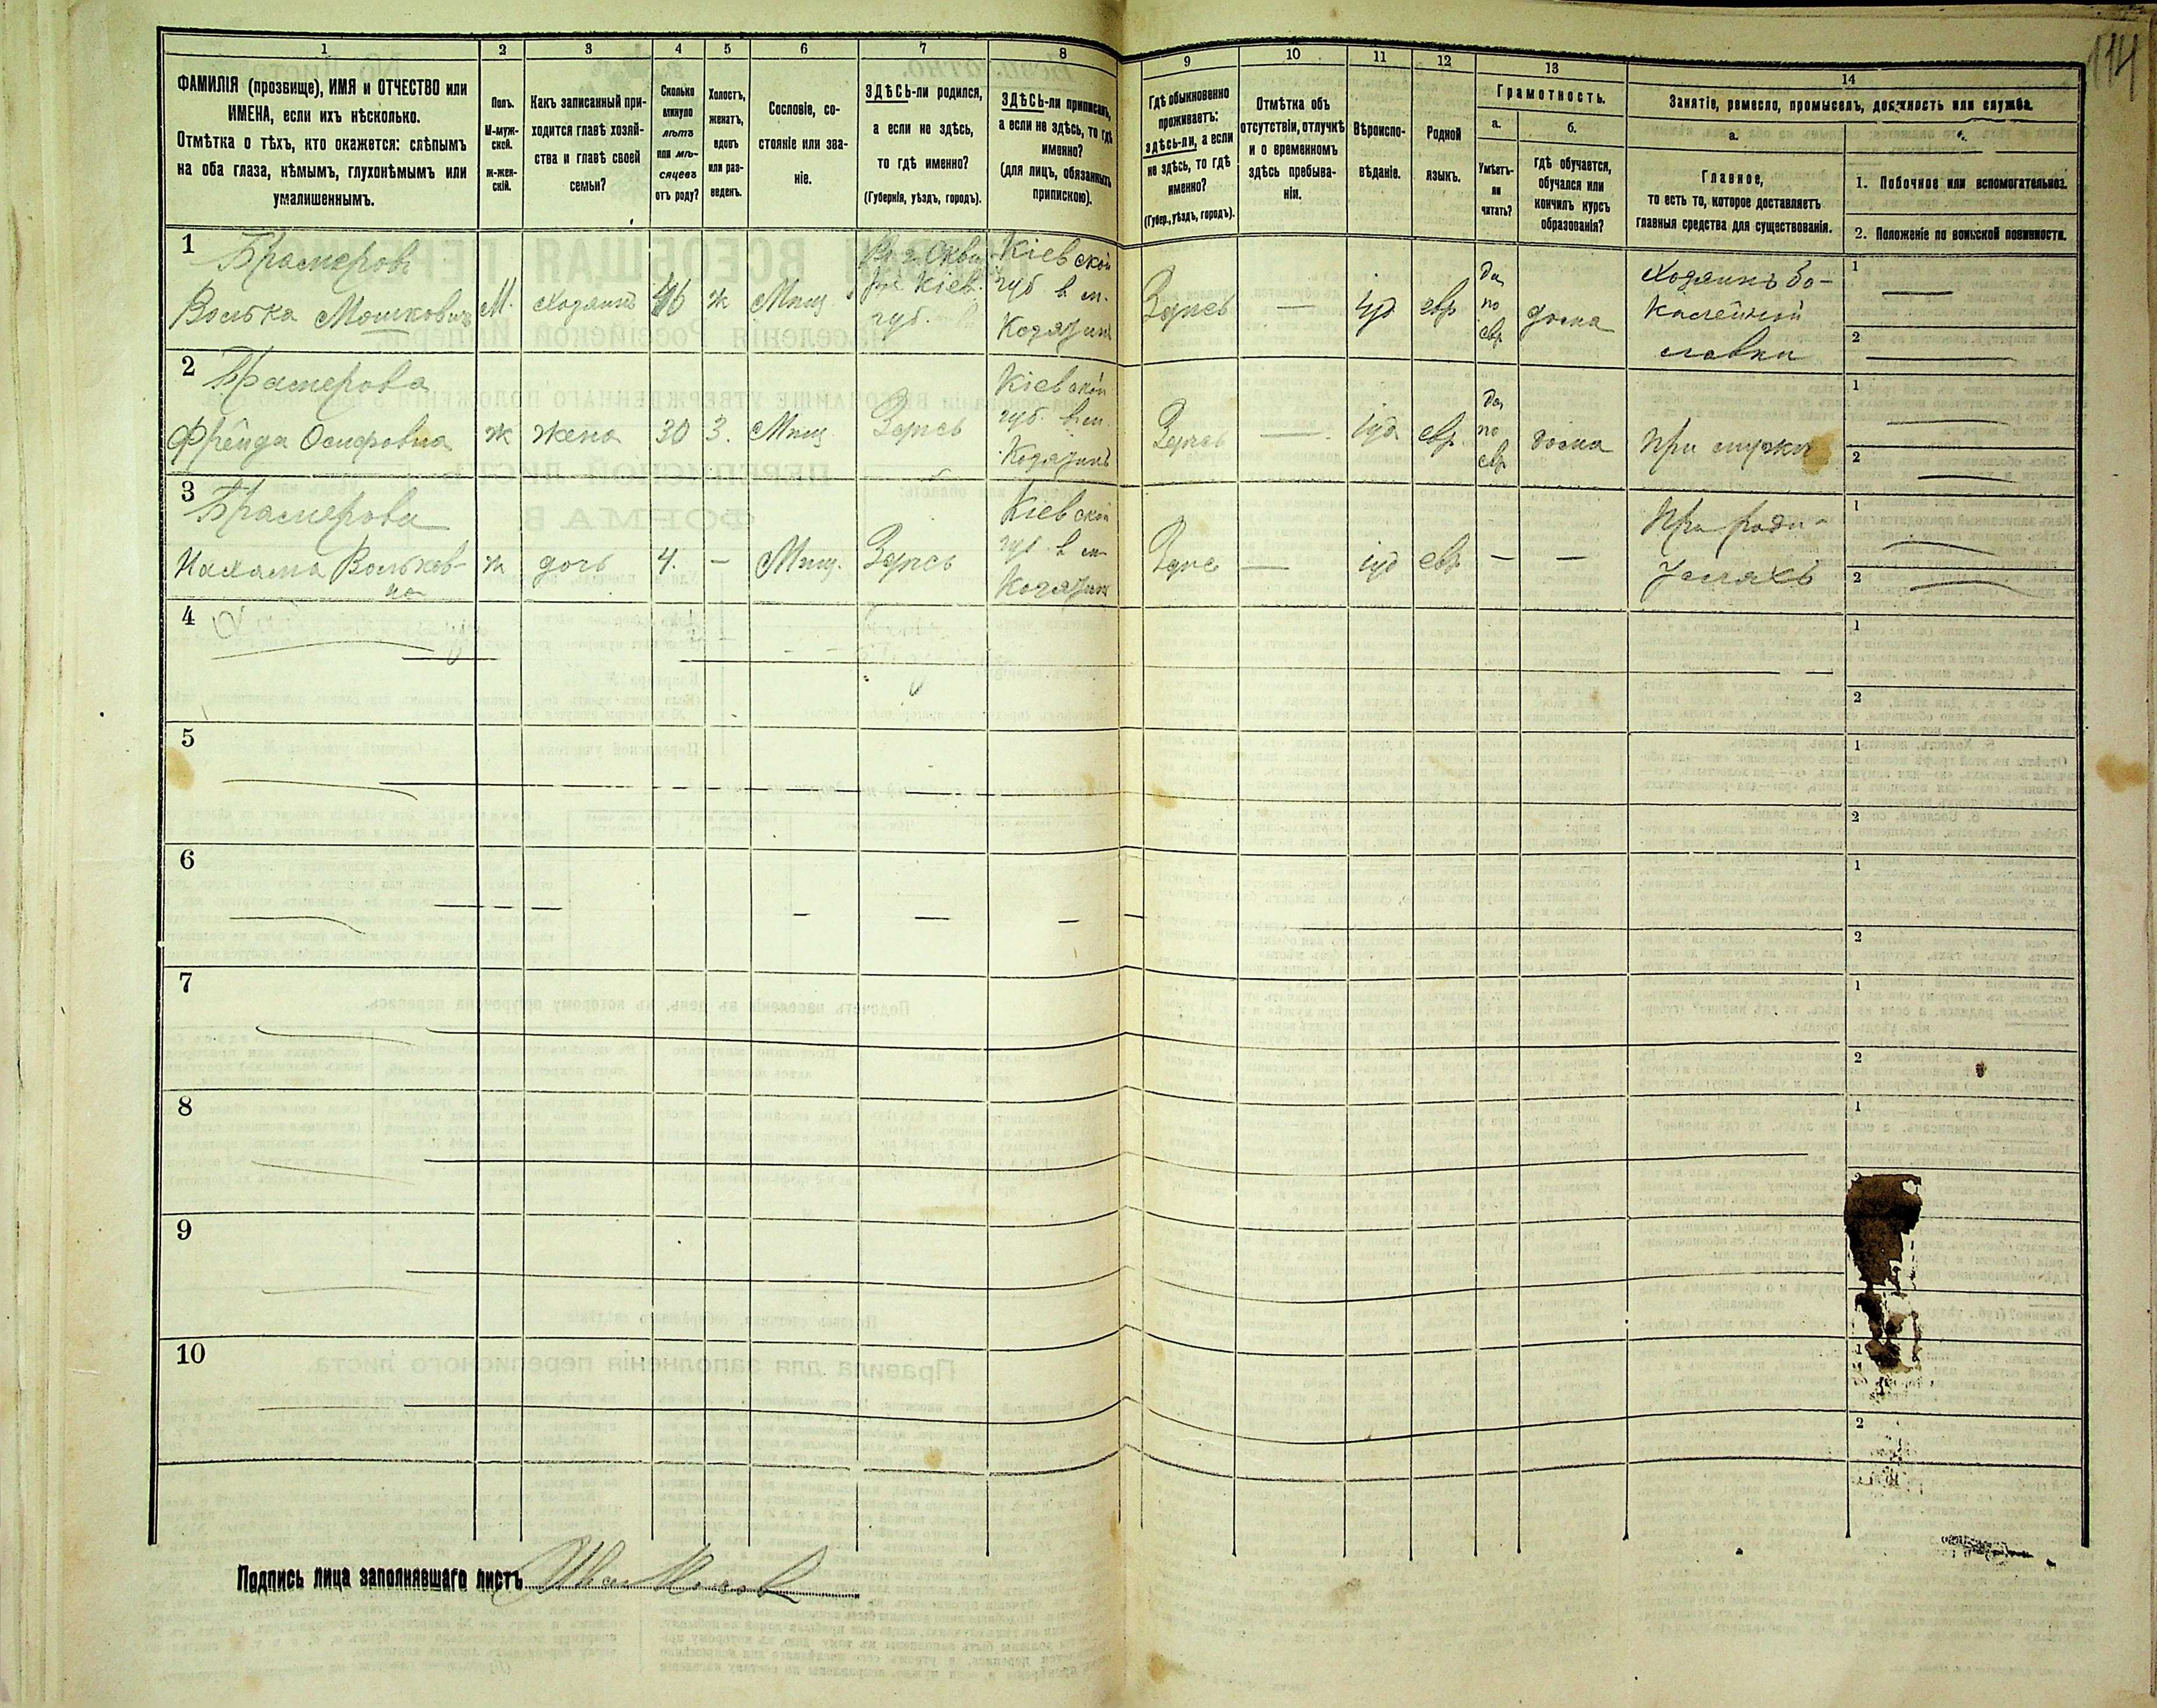 114
1 2 3 4 5 6 7 8 9 10 11 12 13 14
ФАМИЛІЯ (прозвище), ИМЯ и ОТЧЕСТВО или
ИМЕНА, если ихъ нѣсколько.
Отмѣтка о тѣхъ, кто окажется: слѣпымъ
на оба глаза, нѣмымъ, глухонѣмымъ или
умалишеннымъ.
Полъ.
М-муж-
ской.
ж-жен-
скій.
Какъ записанный при-
ходится главѣ хозяй-
ства и главѣ своей
семьи?
Сколько
минуло
лѣтъ
или мѣ-
сяцевъ
отъ роду?
Холостъ,
женатъ,
вдовъ
или раз-
веденъ.
Сословіе, со-
стояніе или зва-
ніе.
ЗДѢСЬ-ли родился,
а если не здѣсь,
то гдѣ именно?
(Губернія, уѣздъ, городъ).
ЗДѢСЬ-ли приписанъ,
а если не здѣсь, то гдѣ
именно?
(для лицъ, обязанныхъ
припискою).
Гдѣ обыкновенно
проживаетъ:
здѣсь-ли, а если
не здѣсь, то гдѣ
именно?
(Губер., уѣздъ, городъ).
Отмѣтка объ
отсутствіи, отлучкѣ
и о временномъ
здѣсь пребыва-
ніи.
Вѣроиспо-
вѣданіе.
Родной
языкъ.
Грамотность.
а.
Умѣетъ-
ли
читать?
б.
гдѣ обучается,
обучался или
кончилъ курсъ
образованія?
Занятіе, ремесло, промыселъ, должность или служба.
а.
Главное,
то есть то, которое доставляетъ
главныя средства для существованія.
1. Побочное или вспомогательное.
2. Положеніе по воинской повинности.
1
Брамеровъ
Волька Мошковичъ М. хозяинъ 46 ж Мѣщ.
губ.
Кіевской
губ в м.
Здѣсь — іуд евр
да
по
евр
дома
Хозяинъ ба-
калейной
лавки
1 —
2 —
2
Брамерова
Фрейда Осиповна ж жена 30 з. Мѣщ Здѣсь
Кіевской
губ. в м.
Здѣсь — іуд евр
да
по
евр
дома
При мужѣ
1 —
2 —
3
Брамерова
Нахама Вольков-
на
ж дочь 4. — Мѣщ. Здѣсь
Кіевской
губ в м
Здѣсь — іуд евр — —
При роди-
теляхъ
1 —
2 —
4
1
2
5
1
2
6
1
2
7
1
2
8
1
9
10
1
2
Подпись лица заполнявшаго листъ